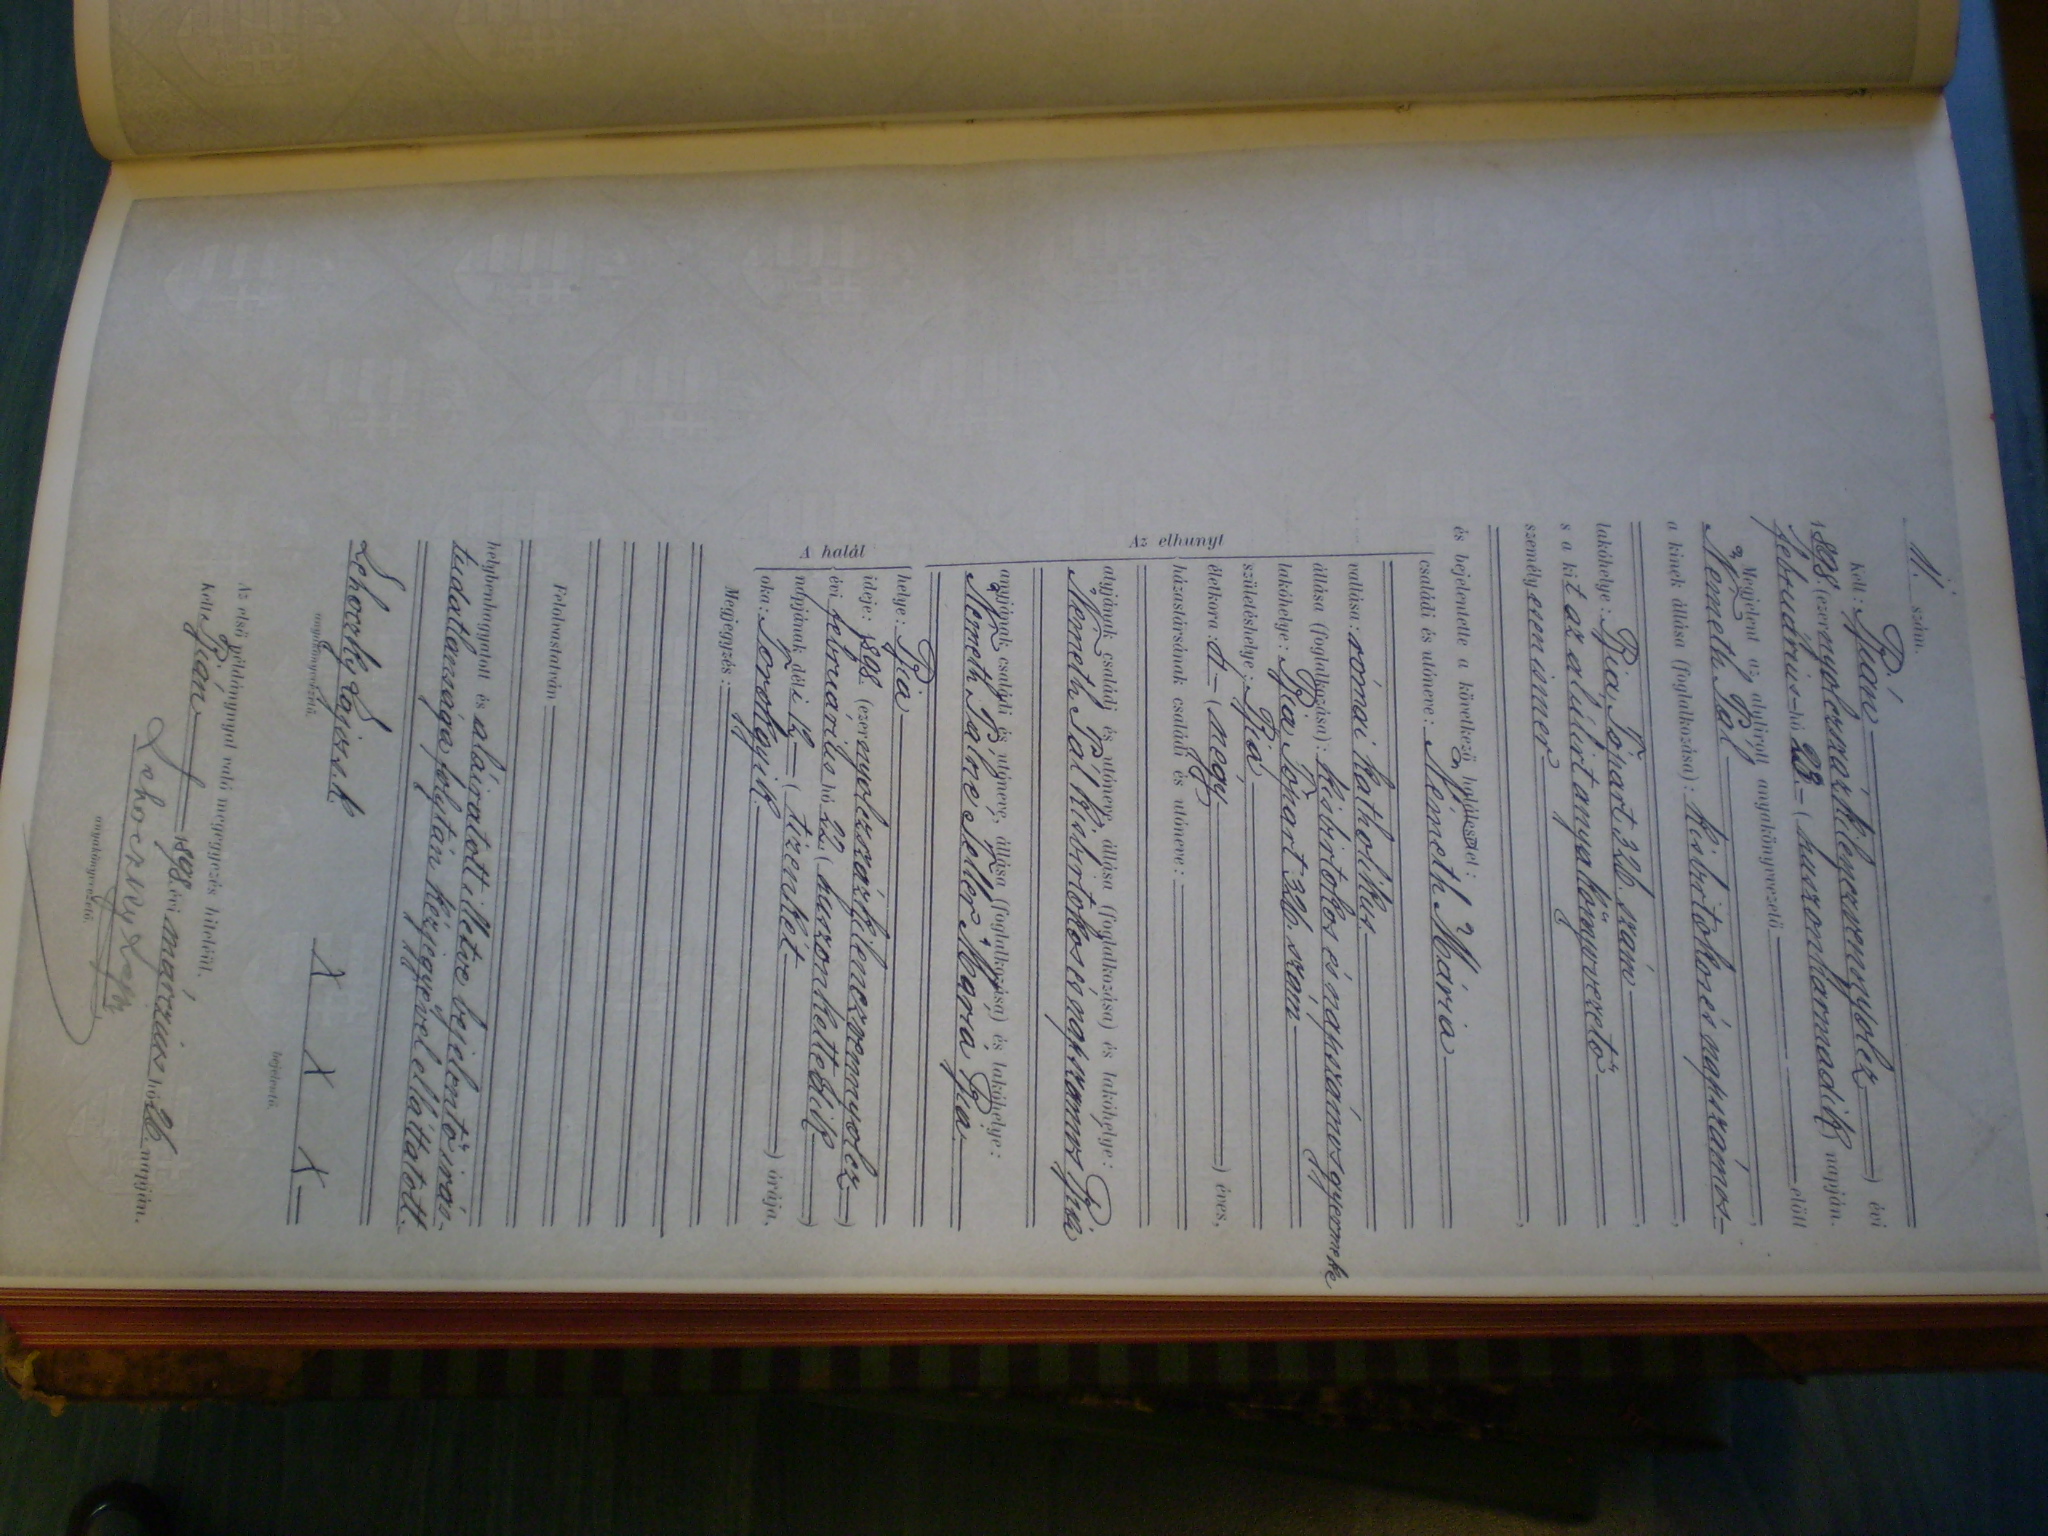 11. szám.
Kelt: Bián (ezernyolczszázkilenczvennyolcz) évi
1898. február hó 23 (huszonharmadik) napján.
Megjelent az alulirt anyakönyvvezető előtt
Németh Pál
a kinek állása (foglalkozása): kisbirtokos és napszámos,
lakóhelye: Bia, Tópart 326. szám
s a kit az alulirt anyakönyvvezető
személyesen ismer,
és bejelentette a következő halálesetet:
családi és utóneve: Németh Mária
vallása: római katholikus
állása (foglalkozása): kisbirtokos és napszámos gyermeke
lakóhelye: Bia Tópart 326. szám
születéshelye: Bia
életkora: 4 (négy) éves,
házastársának családi és utóneve:
atyjának családi és utóneve, állása (foglalkozása) és lakóhelye:
Németh Pál kisbirtokos és napszámos Bia
anyjának családi és utóneve, állása (foglalkozása) és lakóhelye:
Németh Pálné Seller Mária Bia
Az elhunyt
helye: Bia
ideje: 1898. (ezernyolczszázkilenczvennyolcz)
évi február hó 22. (huszonkettedik)
napjának déli 12 (tizenkét) órája,
oka: Torokgyik
A halál
Megjegyzés:
Felolvastatván
helybenhagyatott és aláiratott illetve bejelentő irás-
tudatlansága folytán kézjegyével elláttatott.
Lehoczky Lajos s.k. X X X
anyakönyvvezető. bejelentő.
Az első példánynyal való megegyezés hiteléül.
Kelt: Bián 1898. évi márczius hó 26. napján.
Lehoczky Lajos
anyakönyvvezető.